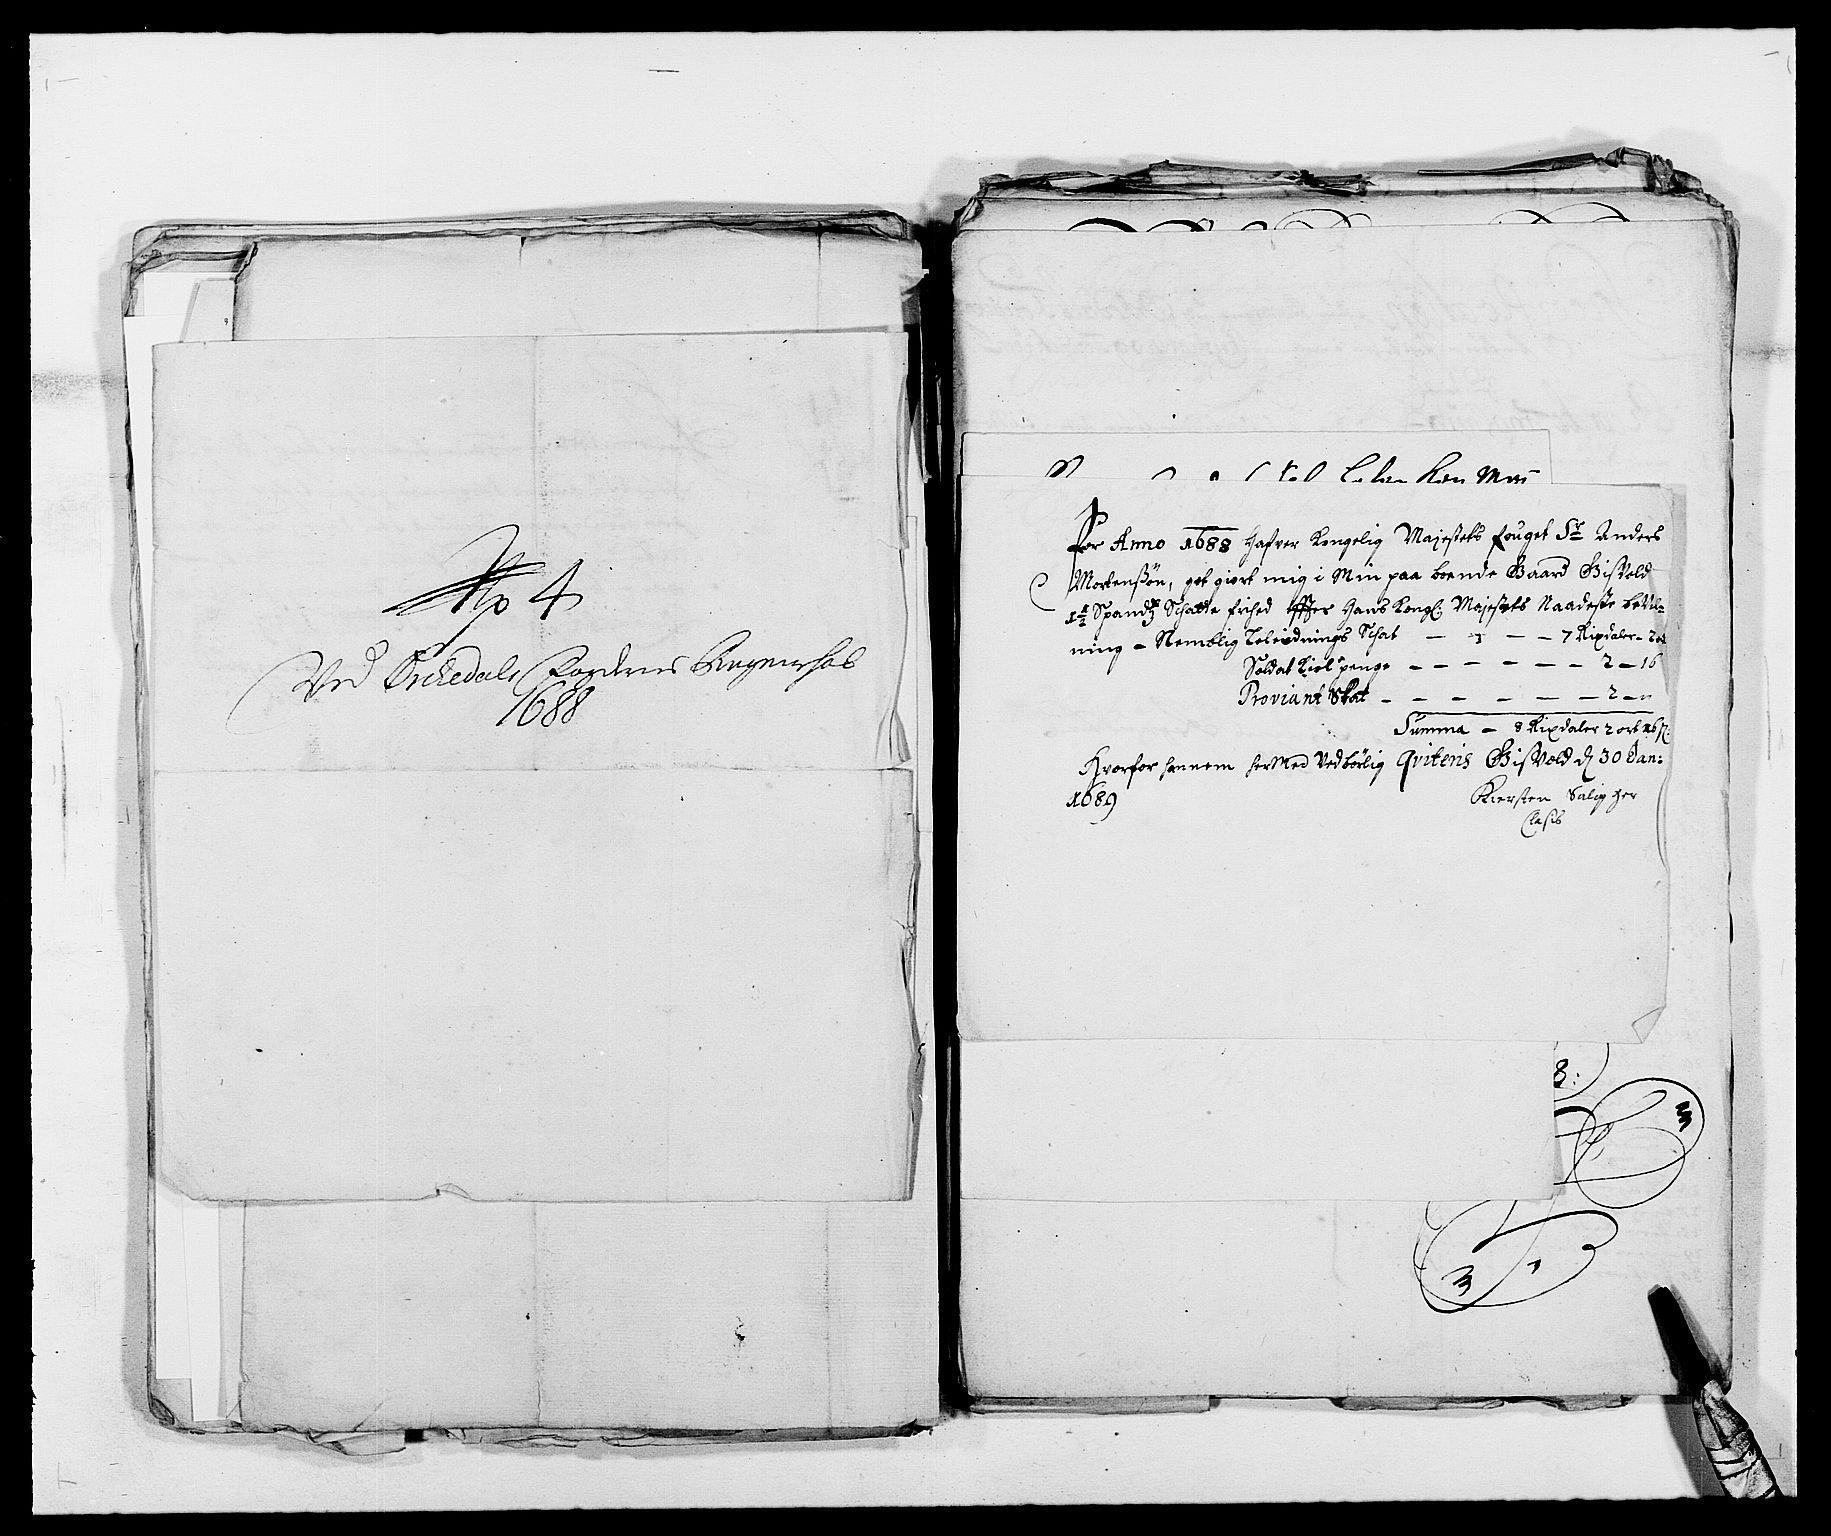 No 4
Ved Orchedals Fogderies Regenschab
1688
For Anno 1688 Hafver Kongelig Majestets fouget Sr Anders
Mortensøn, got giort mig i Min paa boende Gaard Gisvold
1½ Spands Schatte frihed effter Hans Kongl: Majestets Naadeste bevil=
ning - Nemblig Leilendnings Schat - - - - 7 Rixdaler - 2 ort
Soldat Kiol penge - - - - - - - 2 - 16
Proviant Skat - - - - - - 2 - "
Summa - 8 Rixdaler 2 ort 16 s:
Hvorfor hannem herMed Vedbørlig Qviteris Gisvold d 30 Jan:
1689
Kiersten Salig Her
Clasis
8: